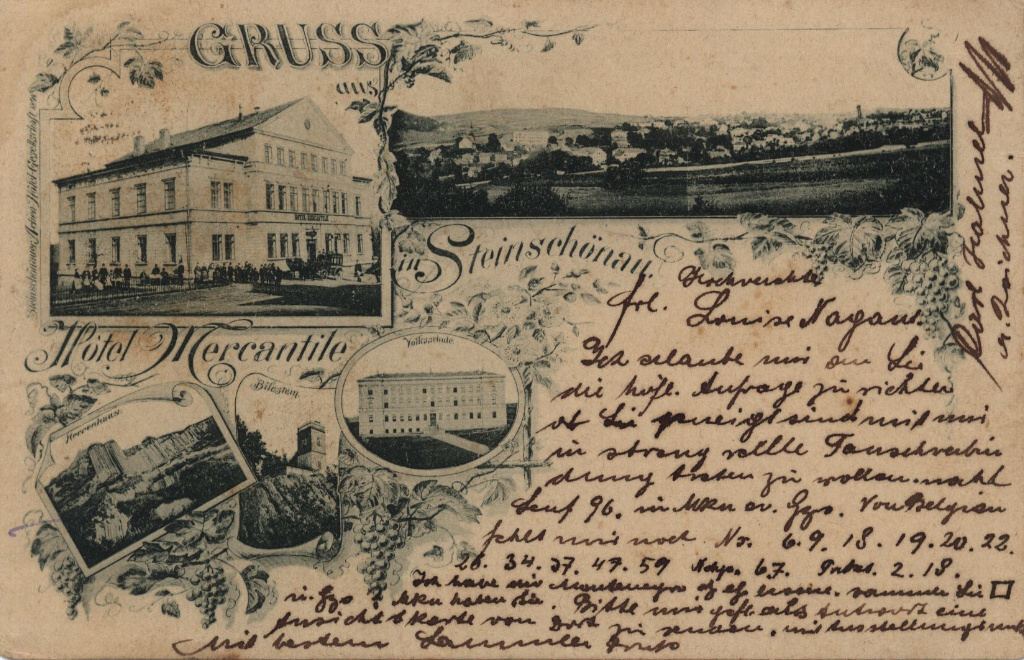 GRUSS
aus
HOTEL MERCANTILE
in Steinschönau
Hôtel Mercantile
Herrenhaus
Bilestein
Volksschule
Hochverehrte
Frl. Louise Nagant.
Ich erlaube mir an Sie
die höfl. Anfrage zu richten
ob Sie geneigt sind mit mir
in streng reelle Tauschverbin
dung treten zu wollen. nacht
Senf 96. in Mkn ev. Gzs. Von Belgien
fehlt mir noch No. 6. 9. 18. 19. 20. 22.
26. 34. 37. 49. 59 67. 2. 18.
Ich habe Montenegro sammeln Sie □
u. Gzs Mkn haben Sie. Bitte mir gefl. als Antwort eine
Ansichtskarte von dort zu senden, mit
Mit bestem Sammler Gruss